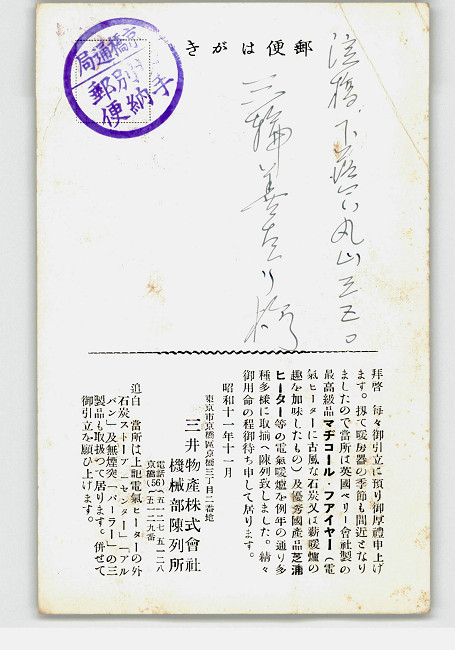 郵便はがき
京橋通局
郵別
便納手
淀橋、下落合丸山三五〇
三輪善太
拝啓 毎々御引立に預り御厚禮申上げ
ます。扨て暖房器の季節も間近となり
ましたので當所は英國ベリー會社製の
最高級品マヂコール・ファイヤー(電
氣ヒーターに古風な石炭又は薪暖爐の
趣を加味したもの)及優秀國産品芝浦
ヒーター等の電氣暖爐を例年の通り多
種多様に取揃へ陳列致しました。精々
御用命の程御待ち申して居ります。
昭和十一年十一月
東京市京橋區京橋三丁目二番地
三井物産株式會社
機械部陳列所
電話
京橋(56)
五一二七 五一二八
五一二九番
追白 當所は上記電氣ヒーターの外
石炭ストーブ「センター」「アル
バン」及無煙突「パーラー」の三
製品も取扱つて居ります。併せて
御引立を願ひ上げます。